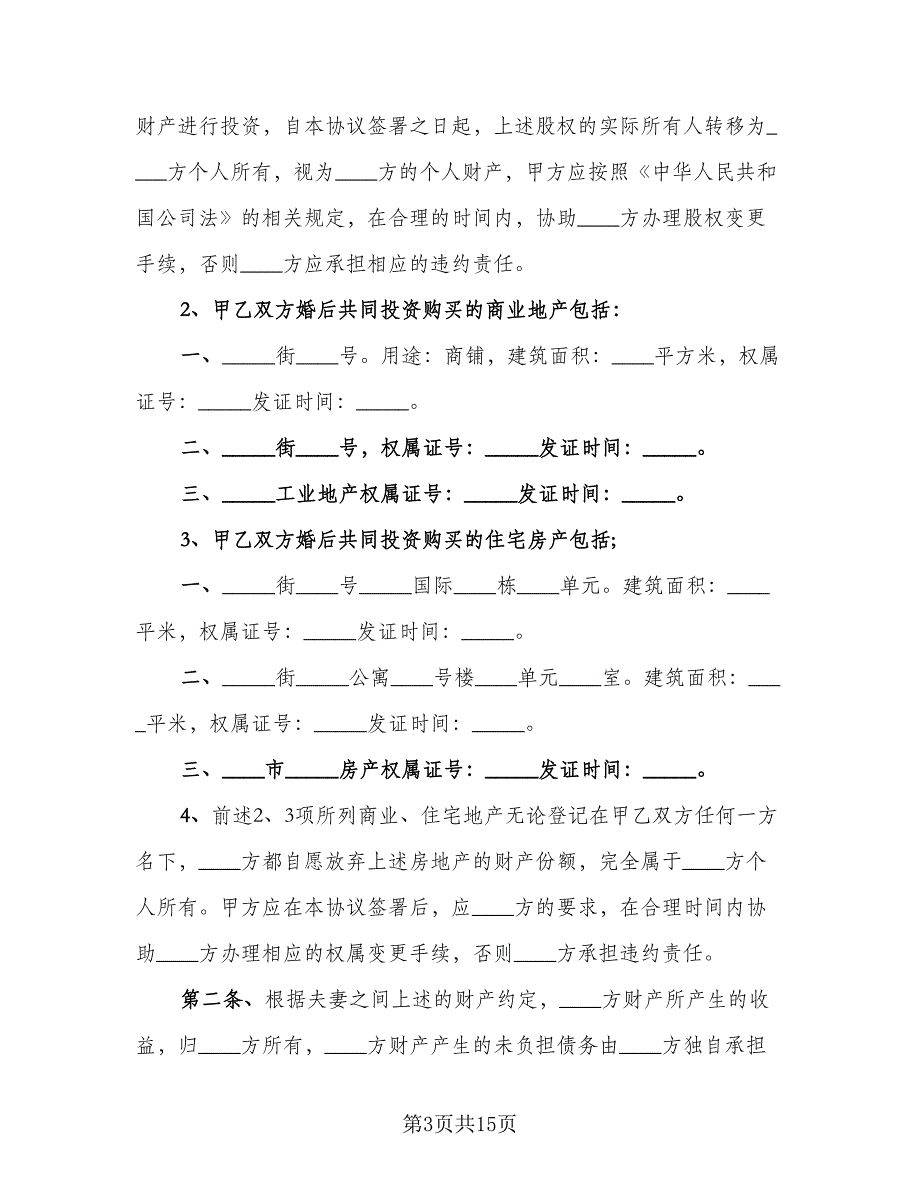 财产进行投资，自本协议签署之日起，上述股权的实际所有人转移为_
___方个人所有，视为____方的个人财产，甲方应按照《中华人民共和
国公司法》的相关规定，在合理的时间内，协助____方办理股权变更
手续，否则____方应承担相应的违约责任。
2、甲乙双方婚后共同投资购买的商业地产包括：
一、_____街____号。用途：商铺，建筑面积：____平方米，权属
证号：_____发证时间：_____。
二、_____街____号，权属证号：_____发证时间：_____。
三、_____工业地产权属证号：_____发证时间：_____。
3、甲乙双方婚后共同投资购买的住宅房产包括;
一、_____街____号_____国际____栋____单元。建筑面积：____
平米，权属证号：_____发证时间：_____。
二、_____街_____公寓____号楼____单元____室。建筑面积：___
_平米，权属证号：_____发证时间：_____。
三、____市_____房产权属证号：_____发证时间：_____。
4、前述2、3项所列商业、住宅地产无论登记在甲乙双方任何一方
名下，____方都自愿放弃上述房地产的财产份额，完全属于____方个
人所有。甲方应在本协议签署后，应____方的要求，在合理时间内协
助____方办理相应的权属变更手续，否则____方承担违约责任。
第二条、根据夫妻之间上述的财产约定，____方财产所产生的收
益，归____方所有，____方财产产生的未负担债务由____方独自承担
第3页共15页